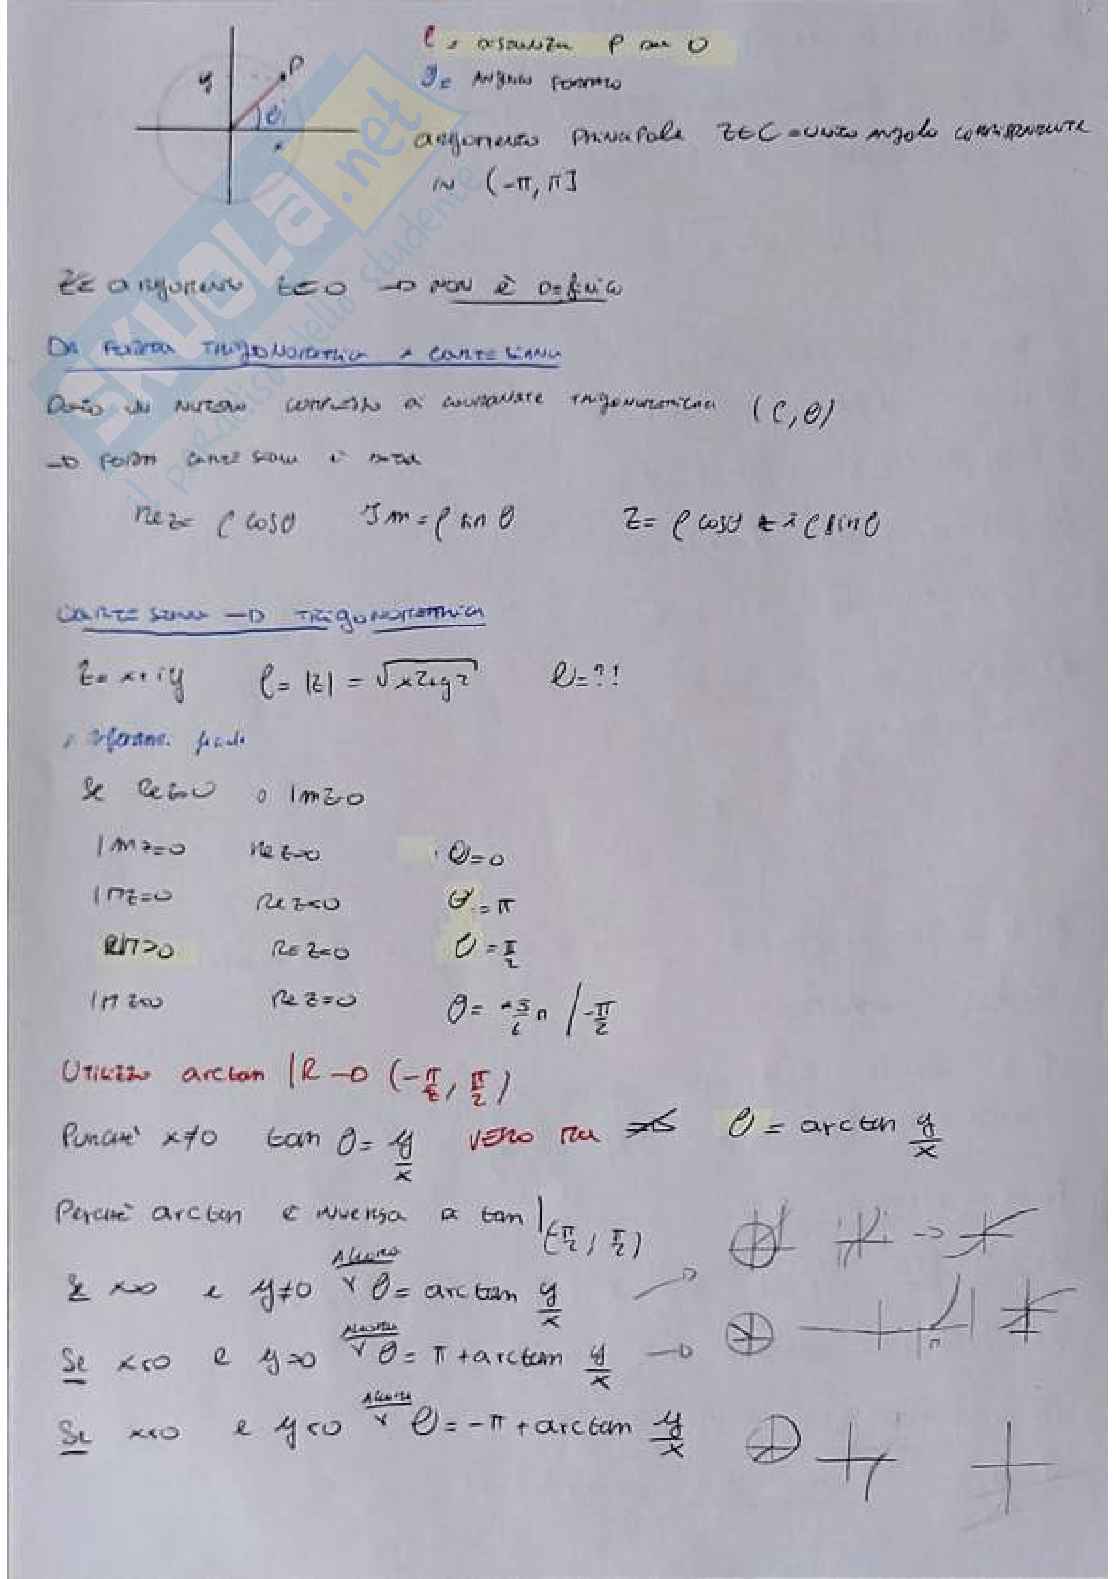 y P
θ
x
ρ = distanza P da O
θ = angolo formato
argomento principale z∈C = unico angolo corrispondente
in (-π, π]
argomento z=0 → non è definito
Da forma trigonometrica a cartesiana
Dato un numero complesso a coordinate trigonometriche (ρ,θ)
→ forma cartesiana è data
Re z= ρ cosθ Im = ρ sin θ z= ρ cosθ + i ρ sinθ
Cartesiana → trigonometrica
z= x+iy ρ= |z| = √x2+y2 θ=??
Se Re z=0 o Im z=0
Im z=0 Re z>0 θ=0
Im z=0 Re z<0 θ = π
Im>0 Re z=0 θ = π/2
Im z<0 Re z=0 θ= π / -π/2
Utilizzo arctan IR → (-π/2, π/2)
Purché x≠0 tan θ= y/x vero ma θ = arctan y/x
Perché arctan è inversa a tan |(-π/2, π/2)
Se x>0 e y≠0 allora θ= arctan y/x
Se x<0 e y>0 allora θ= π + arctan y/x
π
Se x<0 e y<0 allora θ= -π + arctan y/x
SKUOLA.net
il paradiso dello studente